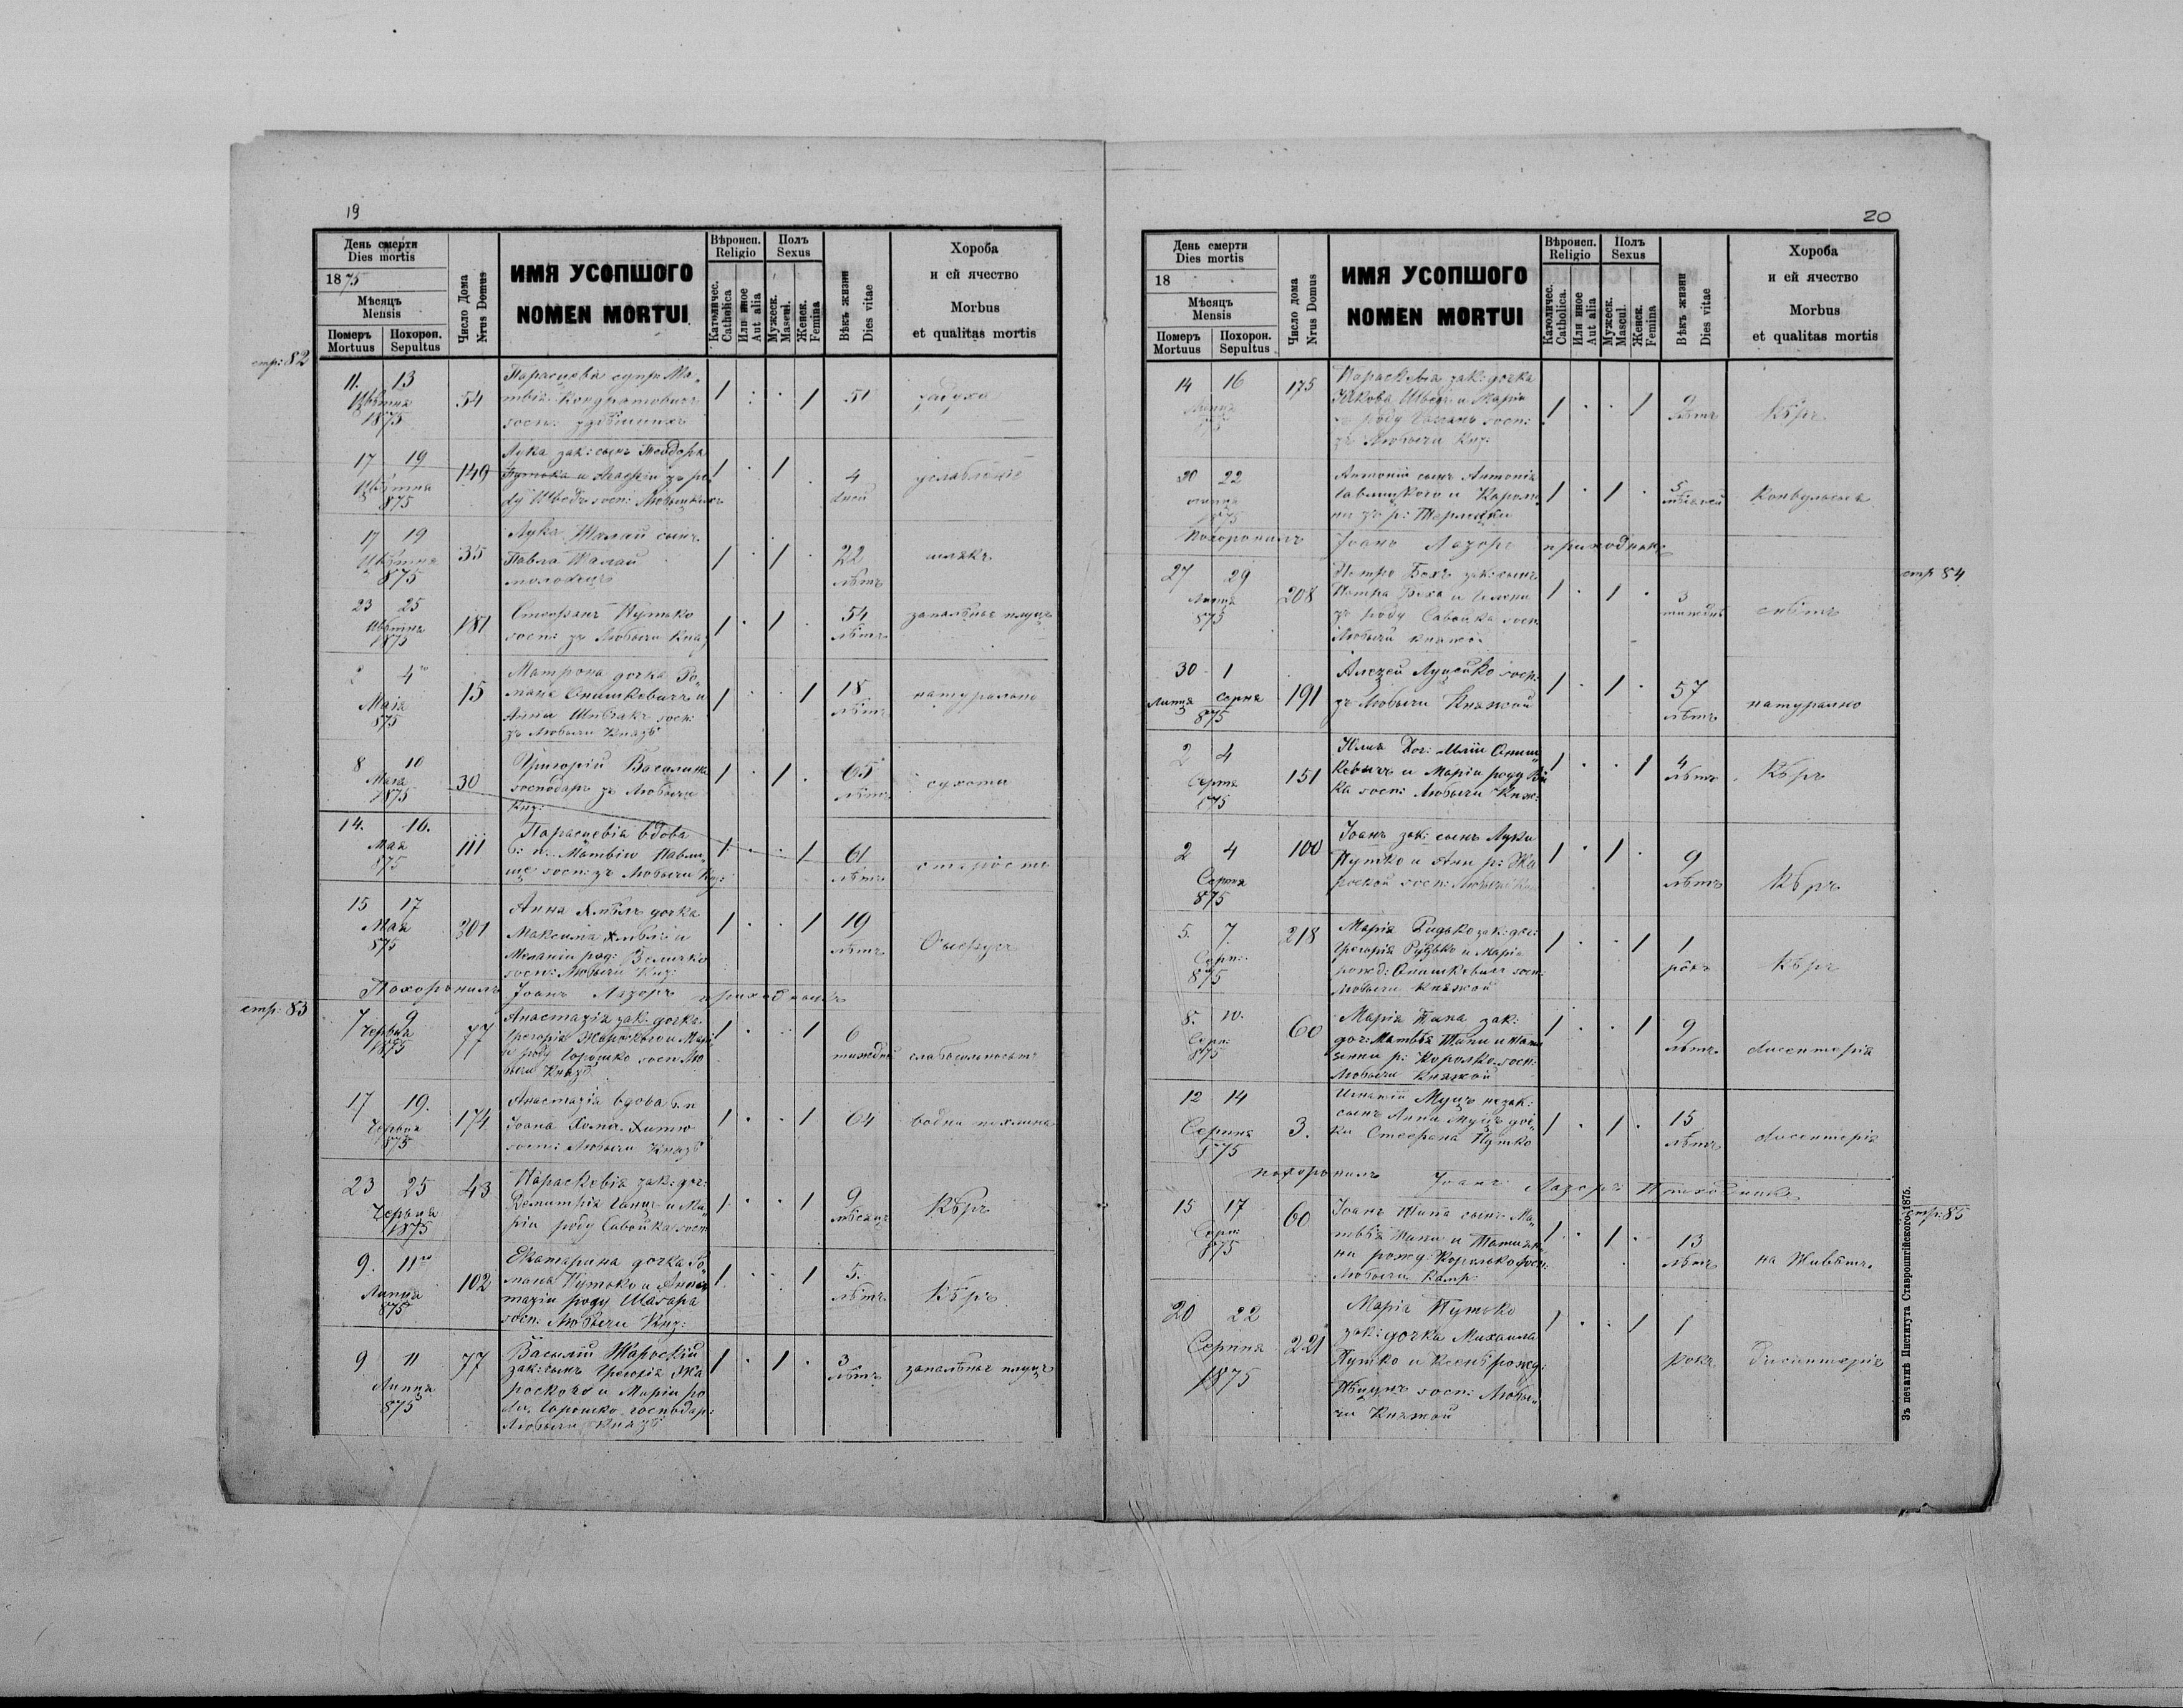 19
День смерти
Dies mortis
1875
Мѣсяцъ
Mensis
Померъ
Mortuus
Похорон.
Sepultus
Число Дома
Nrus Domus
ИМЯ УСОПШОГО
NOMEN MORTUI
Вѣроисп.
Religio
Католичес.
Catholica
Или иное
Aut alia
Полъ
Sexus
Мужеск.
Mascul.
Женск.
Femina
Вѣкъ жизни
Dies vitae
Хороба
и ей ячество
Morbus
et qualitas mortis
стр: 82
11. 13
Цвѣтня
1875
54
Параскевія супр. Ма„
твія Кондратовичъ
госп:
1 1 51 задуха
17 19
Цвѣтня
875
149
Лука зак: сынъ Теодора
Путька и Анастазіи зъ ро„
ду Шведъ госп: Любычи
1 1 4
дней
ослабленіе
17 19
Цвѣтня
875
35
Лука Шалай сынъ
Павла Шалай
молодецъ
1 1 22
лѣтъ
шлякъ
23 25
Цвѣтня
1875
181
Стефанъ Путько
госп: зъ Любычи Княз
1 1 54
лѣтъ
запалѣнье плуцъ
4го
Мая
875
15
Матрона дочка Ро„
мана Онишкевичъ и
Анны Шибакъ госп:
зъ Любычи Князѣ
1 1 18
лѣтъ
натурально
8 10
Мая
1875
30
Григорій Василина
господарь зъ Любычи
Кнз:
1 1 65
лѣтъ
сухоти
14. 16.
Мая
875
111
Параскевія вдова
б: п. Матвію Павли„
ще госп: зъ Любычи Кнз:
1 1 61
лѣтъ
старость
15 17
Мая
875
201
Анна Хмѣль дочка
Максима Хмѣль и
Меланіи род: Величко
госп: Любычи Кнз:
1 1 19
лѣтъ
Похоронилъ Іоанъ Лазоръ приходникъ
стр: 83
7 9
Червня
1875
77
Анастазія зак. дочка
Григорія Жароского и Мар„
и роду Горошко госп Лю
бычи Князѣ
1 1 6
тыждней
слабосильность
17 19.
Червня
875
174
Анастазія вдова б.п
Іоана Хома
госп: Любычи Князѣ
1 1 64 водна пухлина
23 25
Червня
1875
43
Параскевія зак: доч:
Димитрія и Ма„
ріи роду Савойка госп
1 1 9
мѣсяц
Кѣръ
9. 11го
Липця
875
102
Екатарина дочка Ро„
мана Путько и Анас„
тазіи роду Шагара
госп: Любычи Кнз:
1 1 5.
лѣтъ
Кѣръ
9 11
Липця
875
77
Василій Жароскій
зак: сынъ Григорія Жа
роского и Маріи ро
ди. Горошко господар:
Любычи Князѣ
1 1 3
лѣтъ
запалѣнье плуцъ
20
День смерти
Dies mortis
18
Мѣсяцъ
Mensis
Померъ
Mortuus
Похорон.
Sepultus
Число дома
Nrus Domus
ИМЯ УСОПШОГО
NOMEN MORTUI
Вѣроисп.
Religio
Католичес.
Catholica.
Или иное
Aut alia
Полъ
Sexus
Мужеск.
Mascul.
Женск.
Femina
Вѣкъ жизни
Dies vitae
Хороба
и ей ячество
Morbus
et qualitas mortis
14 16
Липця
875
175
Параскевія зак: дочка
Якова Шведъ и Маріи
зъ роду госп:
зъ Любычи Кнз:
1 1 9
лѣтъ
Кѣръ
20 22
Липця
1875
Антоній сынъ Антонія
и Кароли
ни зъ р:
1 1 5
мѣсяцей
Конвульсія
Похоронилъ Іоанъ Лазоръ приходникъ
стр 84
27 29
Липця
875
208
Петръ Бохъ зак: сынъ
Петра Боха и Елены
зъ роду Савойка госп
Любычи княжой
1 1 3
тыжднѣ
30 1
Липця Серпня
875
191
Алезей Луцейко госп.
зъ Любычи Княжой
1 1 57
лѣтъ
натурално
2 4
Серпня
875
151
Юлія Доч: Иліи Ониш
кевичъ и Маріи роду
ка госп: Любычи Княж:
1 1 4
лѣта
Кѣръ
2 4
Серпня
875
100
Іоанъ зак: сынъ Луки
Путко и Анни р: Жа
роской госп: Любычи Кн
1 1 9
лѣтъ
Кѣръ
5. 7.
Серп:
875
218
Марія Рудько зак: доч:
Григорія Рудько и Маріи
рожд: Онишкевичъ госп:
Любычи Княжой
1 1 1
рокъ
Кѣръ
8. 10.
Серп:
875
60
Марія Типа зак:
доч: Матвѣя Типи и Тати
анни р: Королько госп:
Любычи Княжой
1 1 9
лѣтъ
дисентерія
12 14
Серпня
875
3.
Игнатій Муцъ незак:
сынъ Анни Муцъ доч„
ки Стефана Путко
1 1 15
лѣтъ
дисентерія
похоронилъ Іоанъ Лазоръ Приходникъ
стр: 85
15 17
Серп:
875
60
Іоанъ Типа сынъ Ма„
твѣя Типи и Татиан„
ни рожд: Королько госп:
Любычи Камр
1 1 13
лѣтъ
на Животъ.
20 22
Серпня
1875
221
Марія Путько
зак: дочка Михаила
Путко и Ксенѣ рожд:
госп: Любы„
чи Княжой
1 1 1
рокъ
Дисинтерія
Зъ печатнѣ Института Ставропигійского 1875.